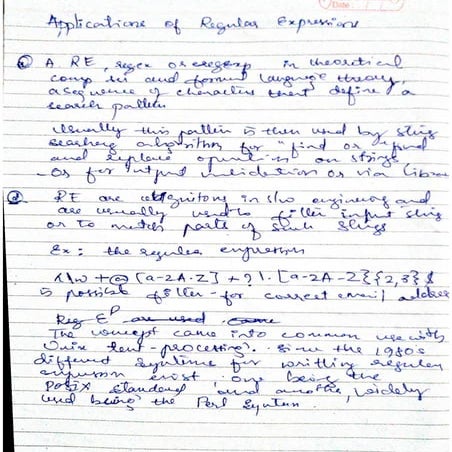 Date:
Applications of Regular Expressions
A RE, regex or regexp in theoretical
comp sci and formal language theory,
a sequence of characters that define a
search pattern
Usually this pattern is then used by string
searching algorithms for "find or find
and replace" operations on strings
Or for input validation or via
② RE are in s/w engineering and
are usually used to filter input string
or to match parts of such strings
Ex: the regular expression
\w + @ [a-zA-Z] + ? \. [a-zA-Z]{2,3}$
is possible filter for correct email address
The concept came into common use with
Unix text-processing. Since the 1980s
different syntaxes for writing regular
expression exist, one being the
POSIX standard and another, widely
used being the Perl Syntax.